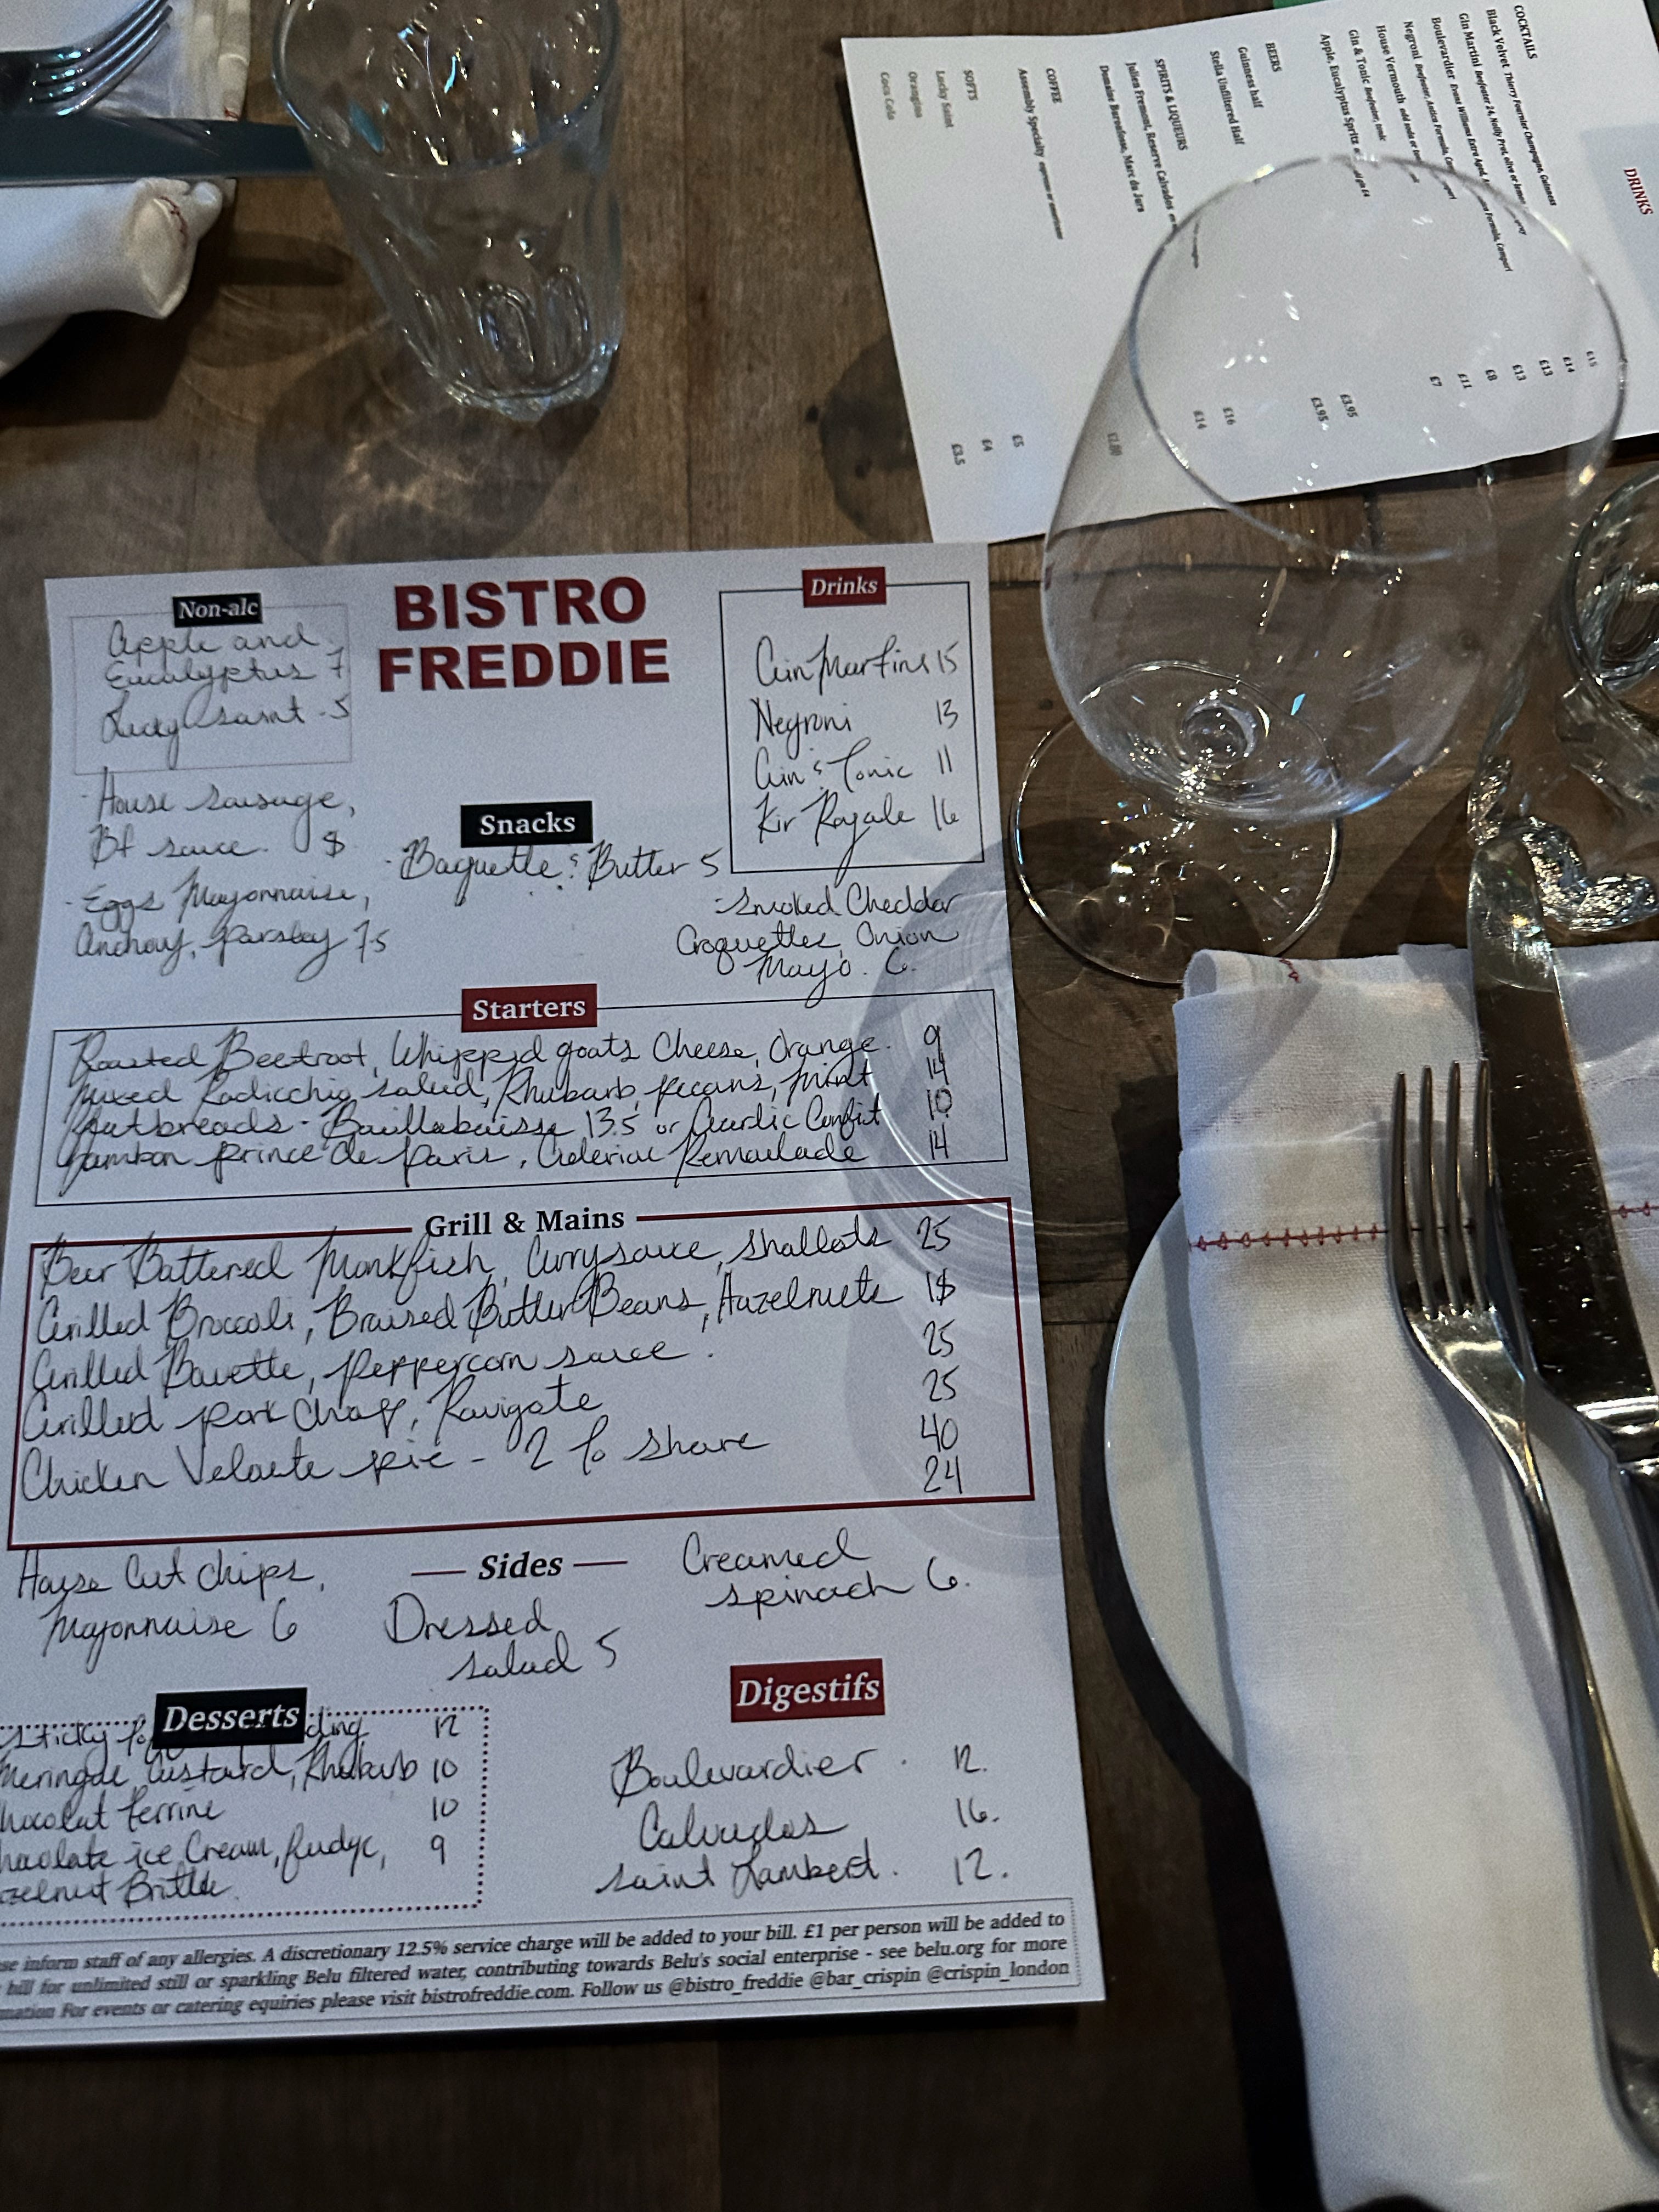 DRINKS
COCKTAILS
Black Velvet Thierry Fournier Champagne, Guinness £15
Gin Martini Beefeater 24, Noilly Prat, olive or lemon £14
Boulevardier Evans Williams Extra Aged, Formula, Campari £13
Negroni Beefeater, Antica Formula, £13
House Vermouth add soda or £8
Gin & Tonic Beefeater, tonic £11
Apple, Eucalyptus Spritz £7
BEERS
Guinness half £3.95
Stella Unfiltered Half £3.95
SPIRITS & LIQUEURS
Julien Fremont, Reserve Calvados £16
Domaine Marc du Jura £14
COFFEE
Assembly Specialty espresso or americano
SOFTS
Lucky Saint £5
Orangina £4
Coca Cola £3.5
BISTRO
FREDDIE
Non-alc
Apple and
Eucalyptus 7
Lucky Saint - 5
Drinks
Gin Martins 15
Negroni 13
Gin & Tonic 11
Kir Royale 16
Snacks
- House sausage,
sauce.
- Baguette & Butter 5
- Eggs Mayonnaise,
Anchovy, Parsley 7.5
- Smoked Cheddar
Croquettes, Onion
Mayo. 6.
Starters
Roasted Beetroot, Whipped goats Cheese, Orange. 9
Mixed Radicchio salad, Rhubarb, pecans, mint 14
flatbreads - Bouillabaisse 13.5 or Garlic Confit 10
Jambon Prince de Paris, Celeriac Remoulade 14
Grill & Mains
Beer Battered Monkfish, Curry sauce, shallots 25
Grilled Broccoli, Braised Butter Beans, Hazelnuts
Grilled Bavette, peppercorn sauce. 25
Grilled pork Chop, Ravigote 25
Chicken Veloute pie - 2 to share 40
24
Sides
House Cut chips,
Mayonnaise 6
Dressed
salad 5
Creamed
spinach 6.
Desserts
Sticky 12
Meringue, Custard, Rhubarb 10
terrine 10
ice Cream, fudge, 9
Brittle.
Digestifs
Boulevardier. 12.
Calvados 16.
Saint Lambert. 12.
inform staff of any allergies. A discretionary 12.5% service charge will be added to your bill. £1 per person will be added to
bill for unlimited still or sparkling Belu filtered water, contributing towards Belu's social enterprise - see belu.org for more
For events or catering equiries please visit bistrofreddie.com. Follow us @bistro_freddie @bar_crispin @crispin_london